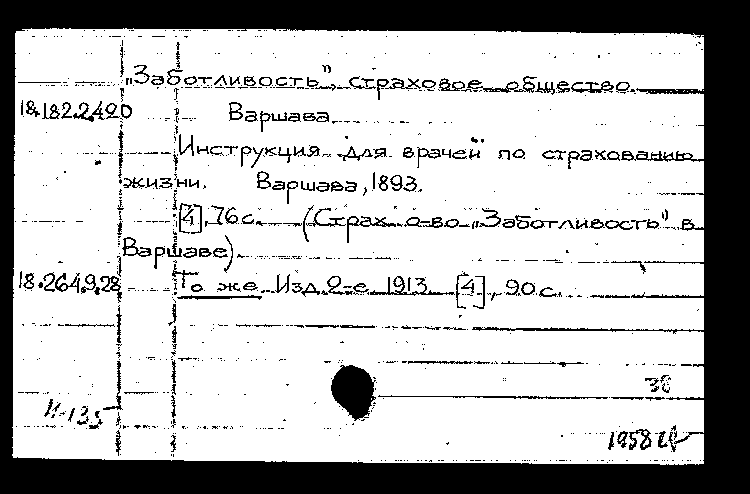 „Заботливость", страховое общество.
18.182.2.420 Варшава.
Инструкция для врачей по страхованию
жизни. Варшава, 1893.
[4], 76 с. (Страх. о-во „Заботливость" в
Варшаве).
18.264.9.28 То же. Изд. 2-е 1913. [4], 90 с.
38
И-135
1958